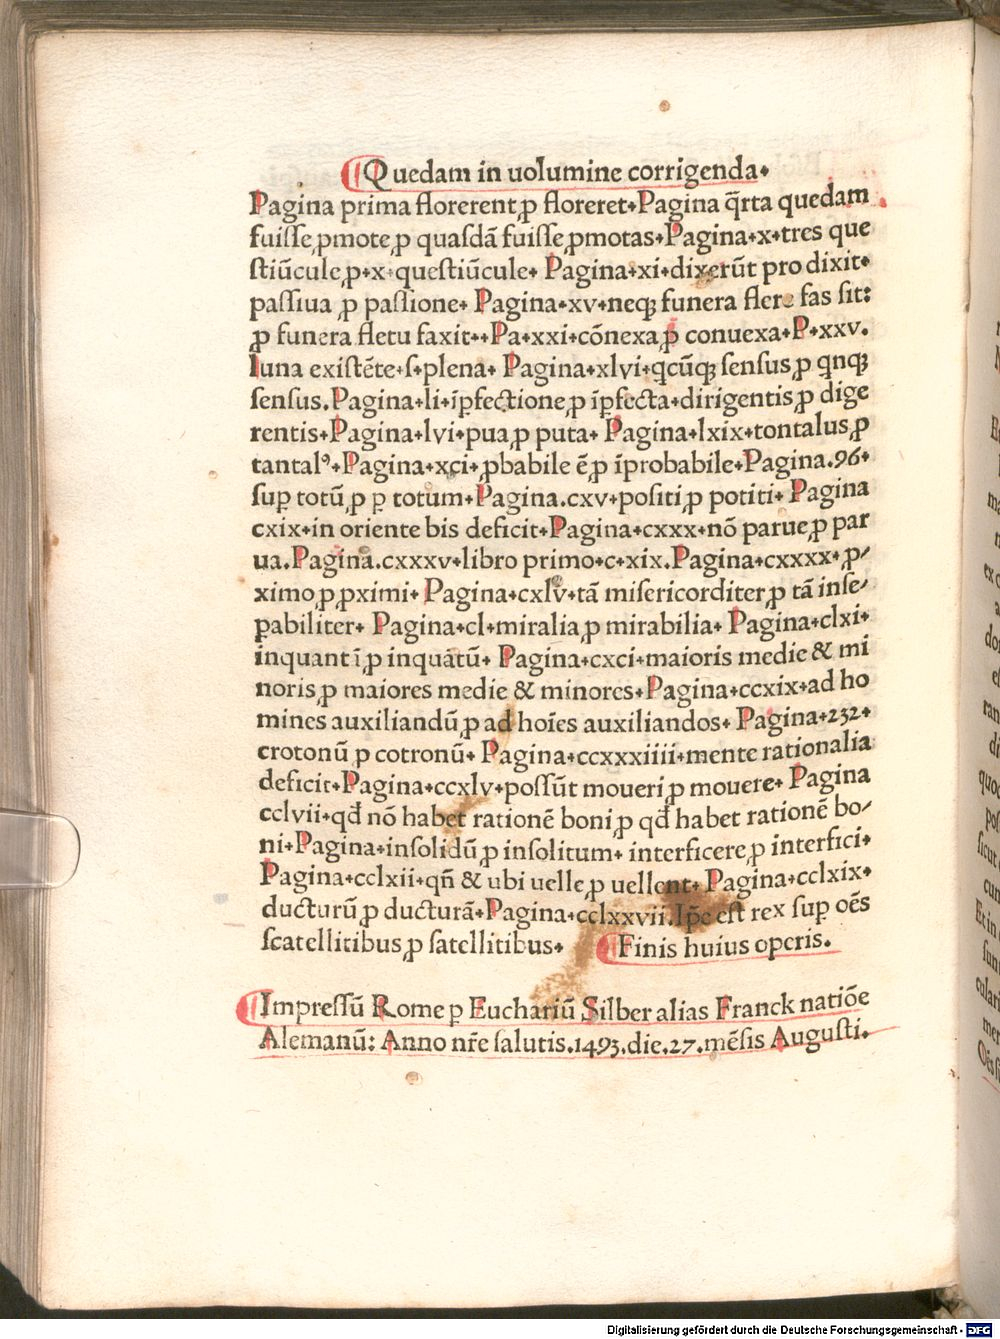 ¶Quedam in uolumine corrigenda.
Pagina prima florerent ꝓ floreret.Pagina q̄rta quedam
fuisse ꝓmote ꝓ quasdā fuisse ꝓmotas.Pagina.x.tres que
stiūcule ꝓ.x.questiūcule. Pagina.xi.dixerūt pro dixit.
passiua ꝓ passione. Pagina.xv.neqꝫ funera flere fas sit:
ꝓ funera fletu faxit..Pa.xxi.cōnexa ꝓ conuexa.P.xxv.
luna existēte.s.plena. Pagina.xlvi.qcūqꝫ sensus ꝓ qnqꝫ
sensus.Pagina.li.īꝑfectione ꝓ īꝑfecta.dirigentis ꝓ dige
rentis.Pagina.lvi.pua ꝓ puta. Pagina.lxix.tontalus ꝓ
tantalꝰ.Pagina.xci.ꝓbabile ē ꝓ īprobabile.Pagina.96.
suꝑ totū ꝓ ꝑ totum.Pagina.cxv.positi ꝓ potiti. Pagina
cxix.in oriente bis deficit.Pagina.cxxx.nō parue ꝓ par
ua.Pagina.cxxxv.libro primo.c.xix.Pagina.cxxxx.ꝓ⸗
ximo ꝓ ꝓximi. Pagina.cxlv.tā misericorditer ꝓ tā inse⸗
ꝑabiliter. Pagina.cl.miralia ꝓ mirabilia. Pagina.clxi.
inquant ī ꝓ inquātū. Pagina.cxci.maioris medie & mi
noris ꝓ maiores medie & minores.Pagina.ccxix.ad ho
mines auxiliandū ꝓ ad hoīes auxiliandos. Pagina.232.
crotonū ꝓ cotronū. Pagina.ccxxxiiii.mente rationalia
deficit.Pagina.ccxlv.possūt moueri ꝓ mouere. Pagina
cclvii.qđ nō habet rationē boni ꝓ qđ habet rationē bo⸗
ni.Pagina.insolidū ꝓ insolitum. interficere ꝓ interfici.
Pagina.cclxii.qn̄ & ubi uelle ꝓ uellent. Pagina.cclxix.
ducturū ꝓ ducturā.Pagina.cclxxvii.Ip̄e est rex suꝑ oēs
scatellitibus ꝓ satellitibus. ¶Finis huius operis.
¶Impressū Rome ꝑ Euchariū Silber alias Franck natiōe
Alemanū: Anno nr̄e salutis.1493.die.27.mēsis Augusti.
Digitalisierung gefördert durch die Deutsche Forschungsgemeinschaft - DFG